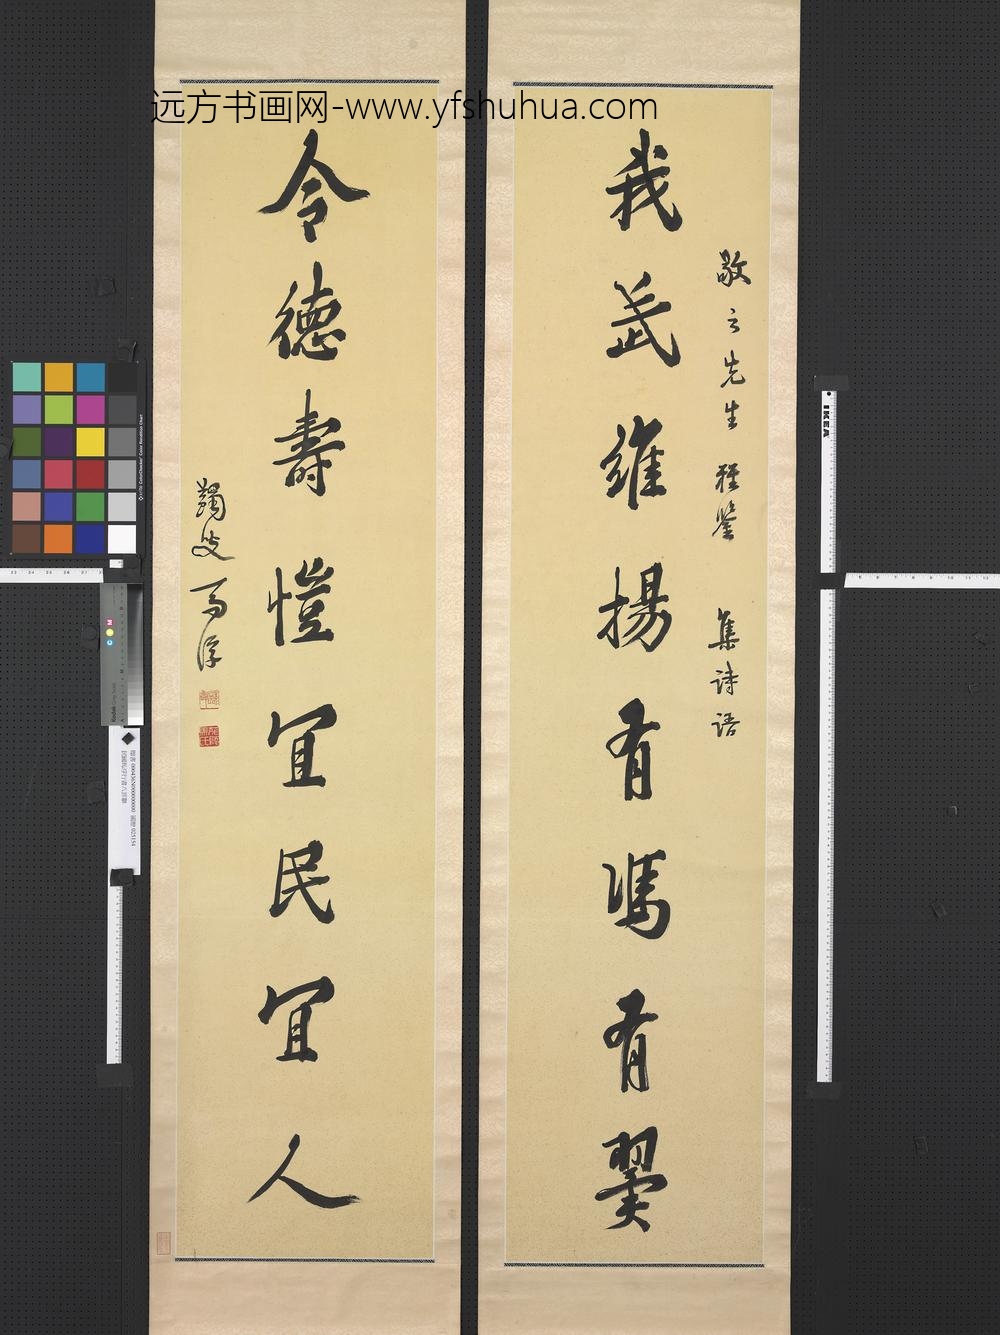 远方书画网-www.yfshuhua.com
我武維揚有馮有翼
敬之先生 雅鑒 集詩語
令德壽愷宜民宜人
躅叟 馮淳
IKEA